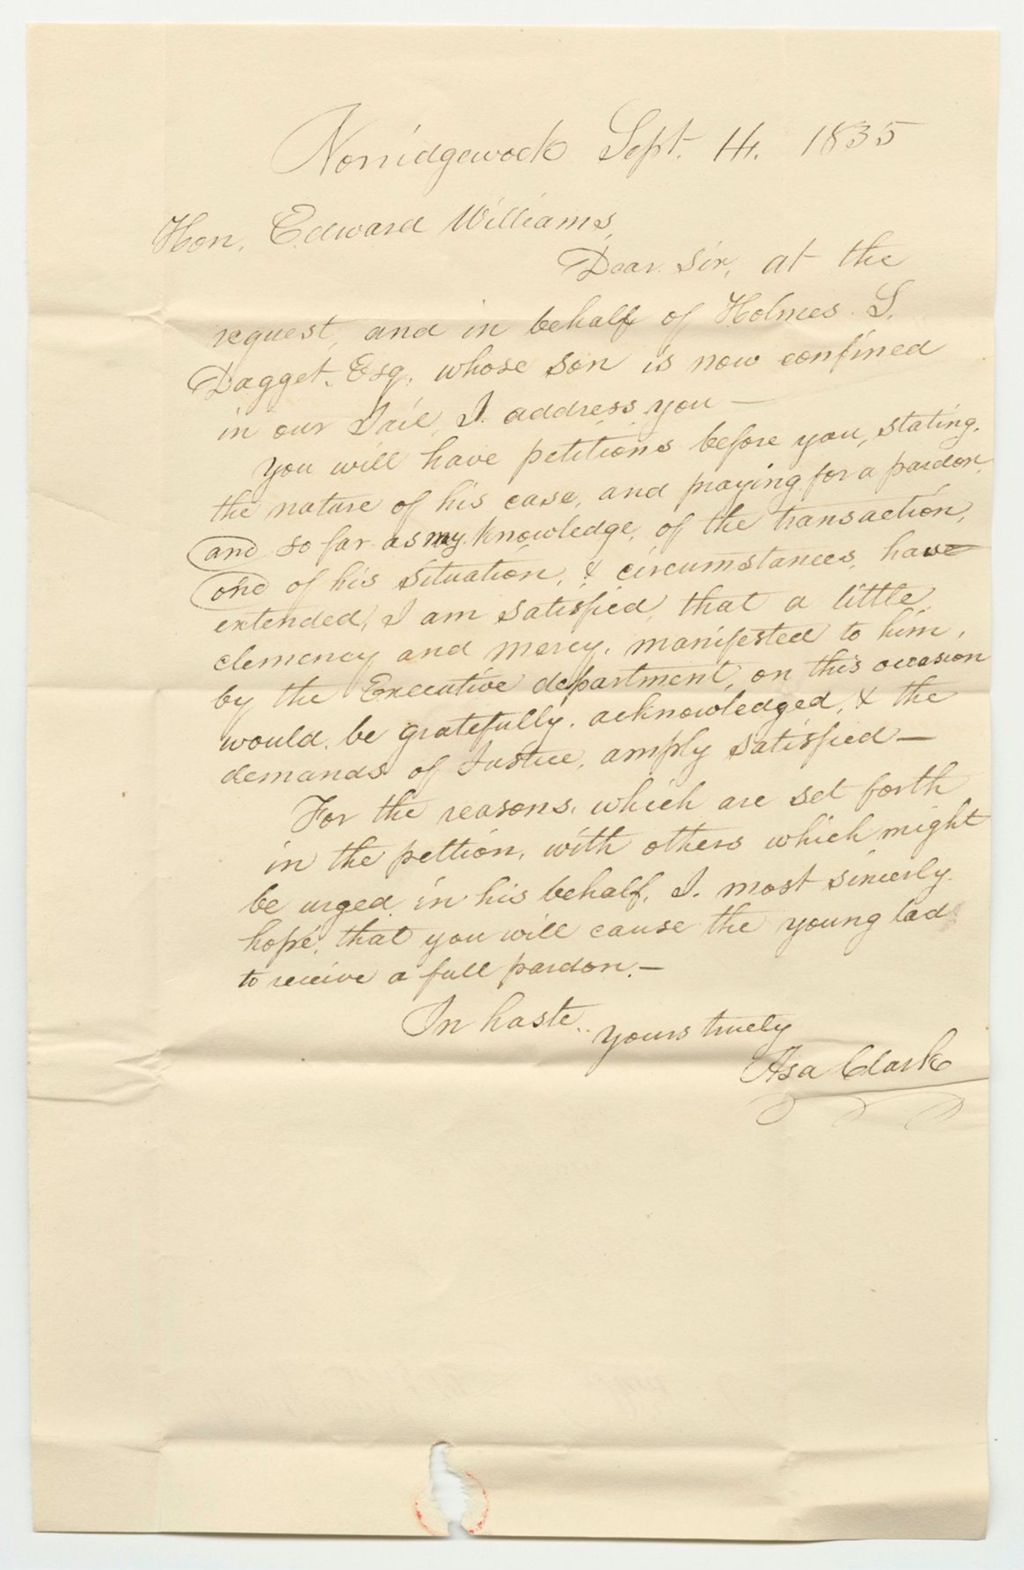 Norridgewock Sept. 14. 1835
Hon. Edward Williams,
Dear Sir, at the
request, and in behalf of Holmes S.
Dagget. Esq. whose son is now confined
in our Jail, I. address you —
You will have petitions before you, stating.
the nature of his case, and praying for a pardon
and so far as my knowledge, of the transaction,
and of his situation, & circumstances, have
extended, I am satisfied, that a little
clemency and mercy, manifested to him,
by the Executive department, on this occasion
would. be gratefully. acknowledged, & the
demands of Justice, amply satisfied —
For the reasons. which are set forth
in the pettion, with others which might
be urged in his behalf, I. most sincerly
hope, that you will cause the young lad
to receive a full pardon. —
In haste.. yours truely
Asa Clark